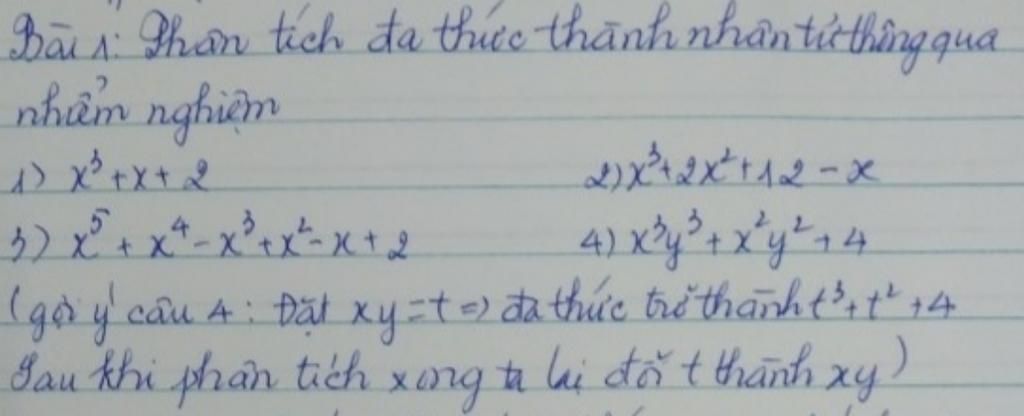 Bài 1: Phân tích đa thức thành nhân tử thông qua
nhẩm nghiệm
1) x³ + x + 2 2) x³ + 2x² + 12 - x
3) x⁵ + x⁴ - x³ + x² - x + 2 4) x³y³ + x²y² + 4
(gợi ý câu 4: Đặt xy = t => đa thức trở thành t³ + t² + 4
Sau khi phân tích xong ta lại đổi t thành xy)